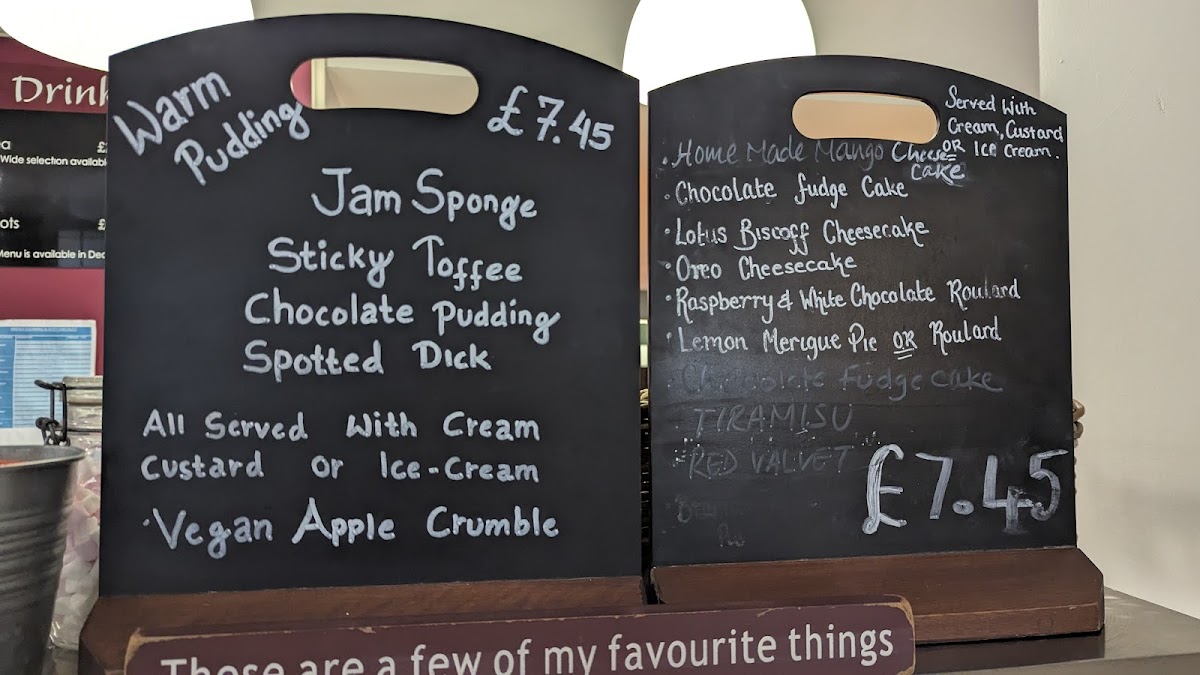 Drink
Wide selection available
ots
Menu is available in Dec
Warm
Pudding
£7.45
Jam Sponge
Sticky Toffee
Chocolate Pudding
Spotted Dick
All Served With Cream
Custard or Ice-Cream
·Vegan Apple Crumble
Served With
Cream, Custard
OR Ice Cream.
·Home Made Mango Cheese=
cake
·Chocolate fudge Cake
·Lotus Biscoff Cheesecake
·Oreo Cheesecake
·Raspberry & White Chocolate Roulard
·Lemon Merigue Pie OR Roulard
Chocolate Fudge cake
TIRAMISU
RED VALVET
£7.45
These are a few of my favourite things